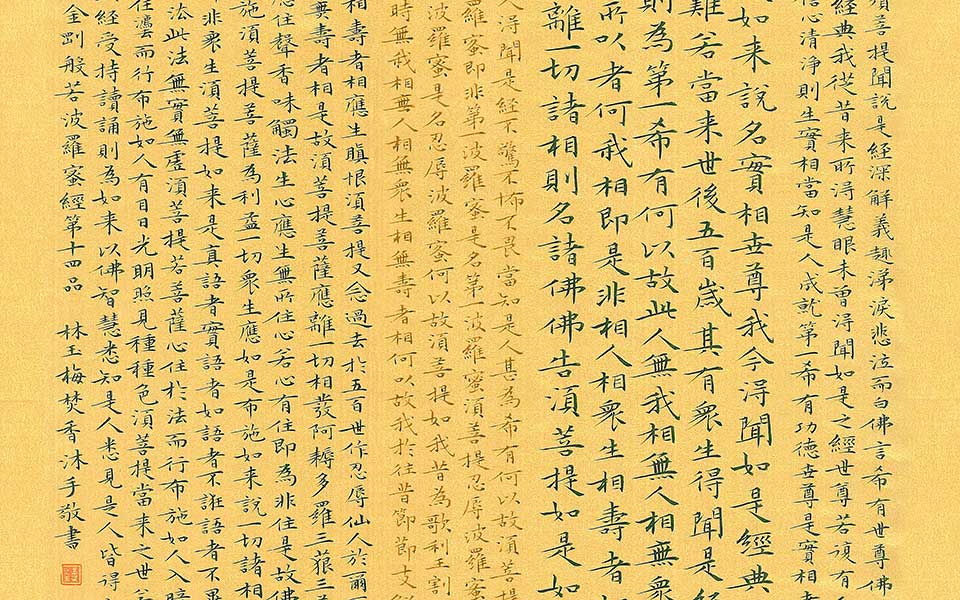 須菩提聞說是經深解義趣涕淚悲泣而白佛言希有世尊佛
經典我從昔來所得慧眼未曾得聞如是之經世尊若復有
信心清淨則生實相當知是人成就第一希有功德世尊是實相
如來說名實相世尊我今得聞如是經典
難若當來世後五百歲其有眾生得聞是經
則為第一希有何以故此人無我相無人相無眾
所以者何我相即是非相人相眾生相壽者
離一切諸相則名諸佛佛告須菩提如是如
人得聞是經不驚不怖不畏當知是人甚為希有何以故須菩提
羅蜜即非第一波羅蜜是名第一波羅蜜須菩提忍辱波羅蜜
波羅蜜是名忍辱波羅蜜何以故須菩提如我昔為歌利王割
時無我相無人相無眾生相無壽者相何以故我於往昔節節支解
相壽者相應生瞋恨須菩提又念過去於五百世作忍辱仙人於爾
無壽者相是故須菩提菩薩應離一切相發阿耨多羅三藐三
應住聲香味觸法生心應生無所住心若心有住即為非住是故佛
施須菩提菩薩為利益一切眾生應如是布施如來說一切諸相
非眾生須菩提如來是真語者實語者如語者不誑語者不異
法此法無實無虛須菩提若菩薩心住於法而行布施如人入暗
住法而行布施如人有目日光明照見種種色須菩提當來之世若
經受持讀誦則為如來以佛智慧悉知是人悉見是人皆得
金剛般若波羅蜜經第十四品 林玉梅焚香沐手敬書